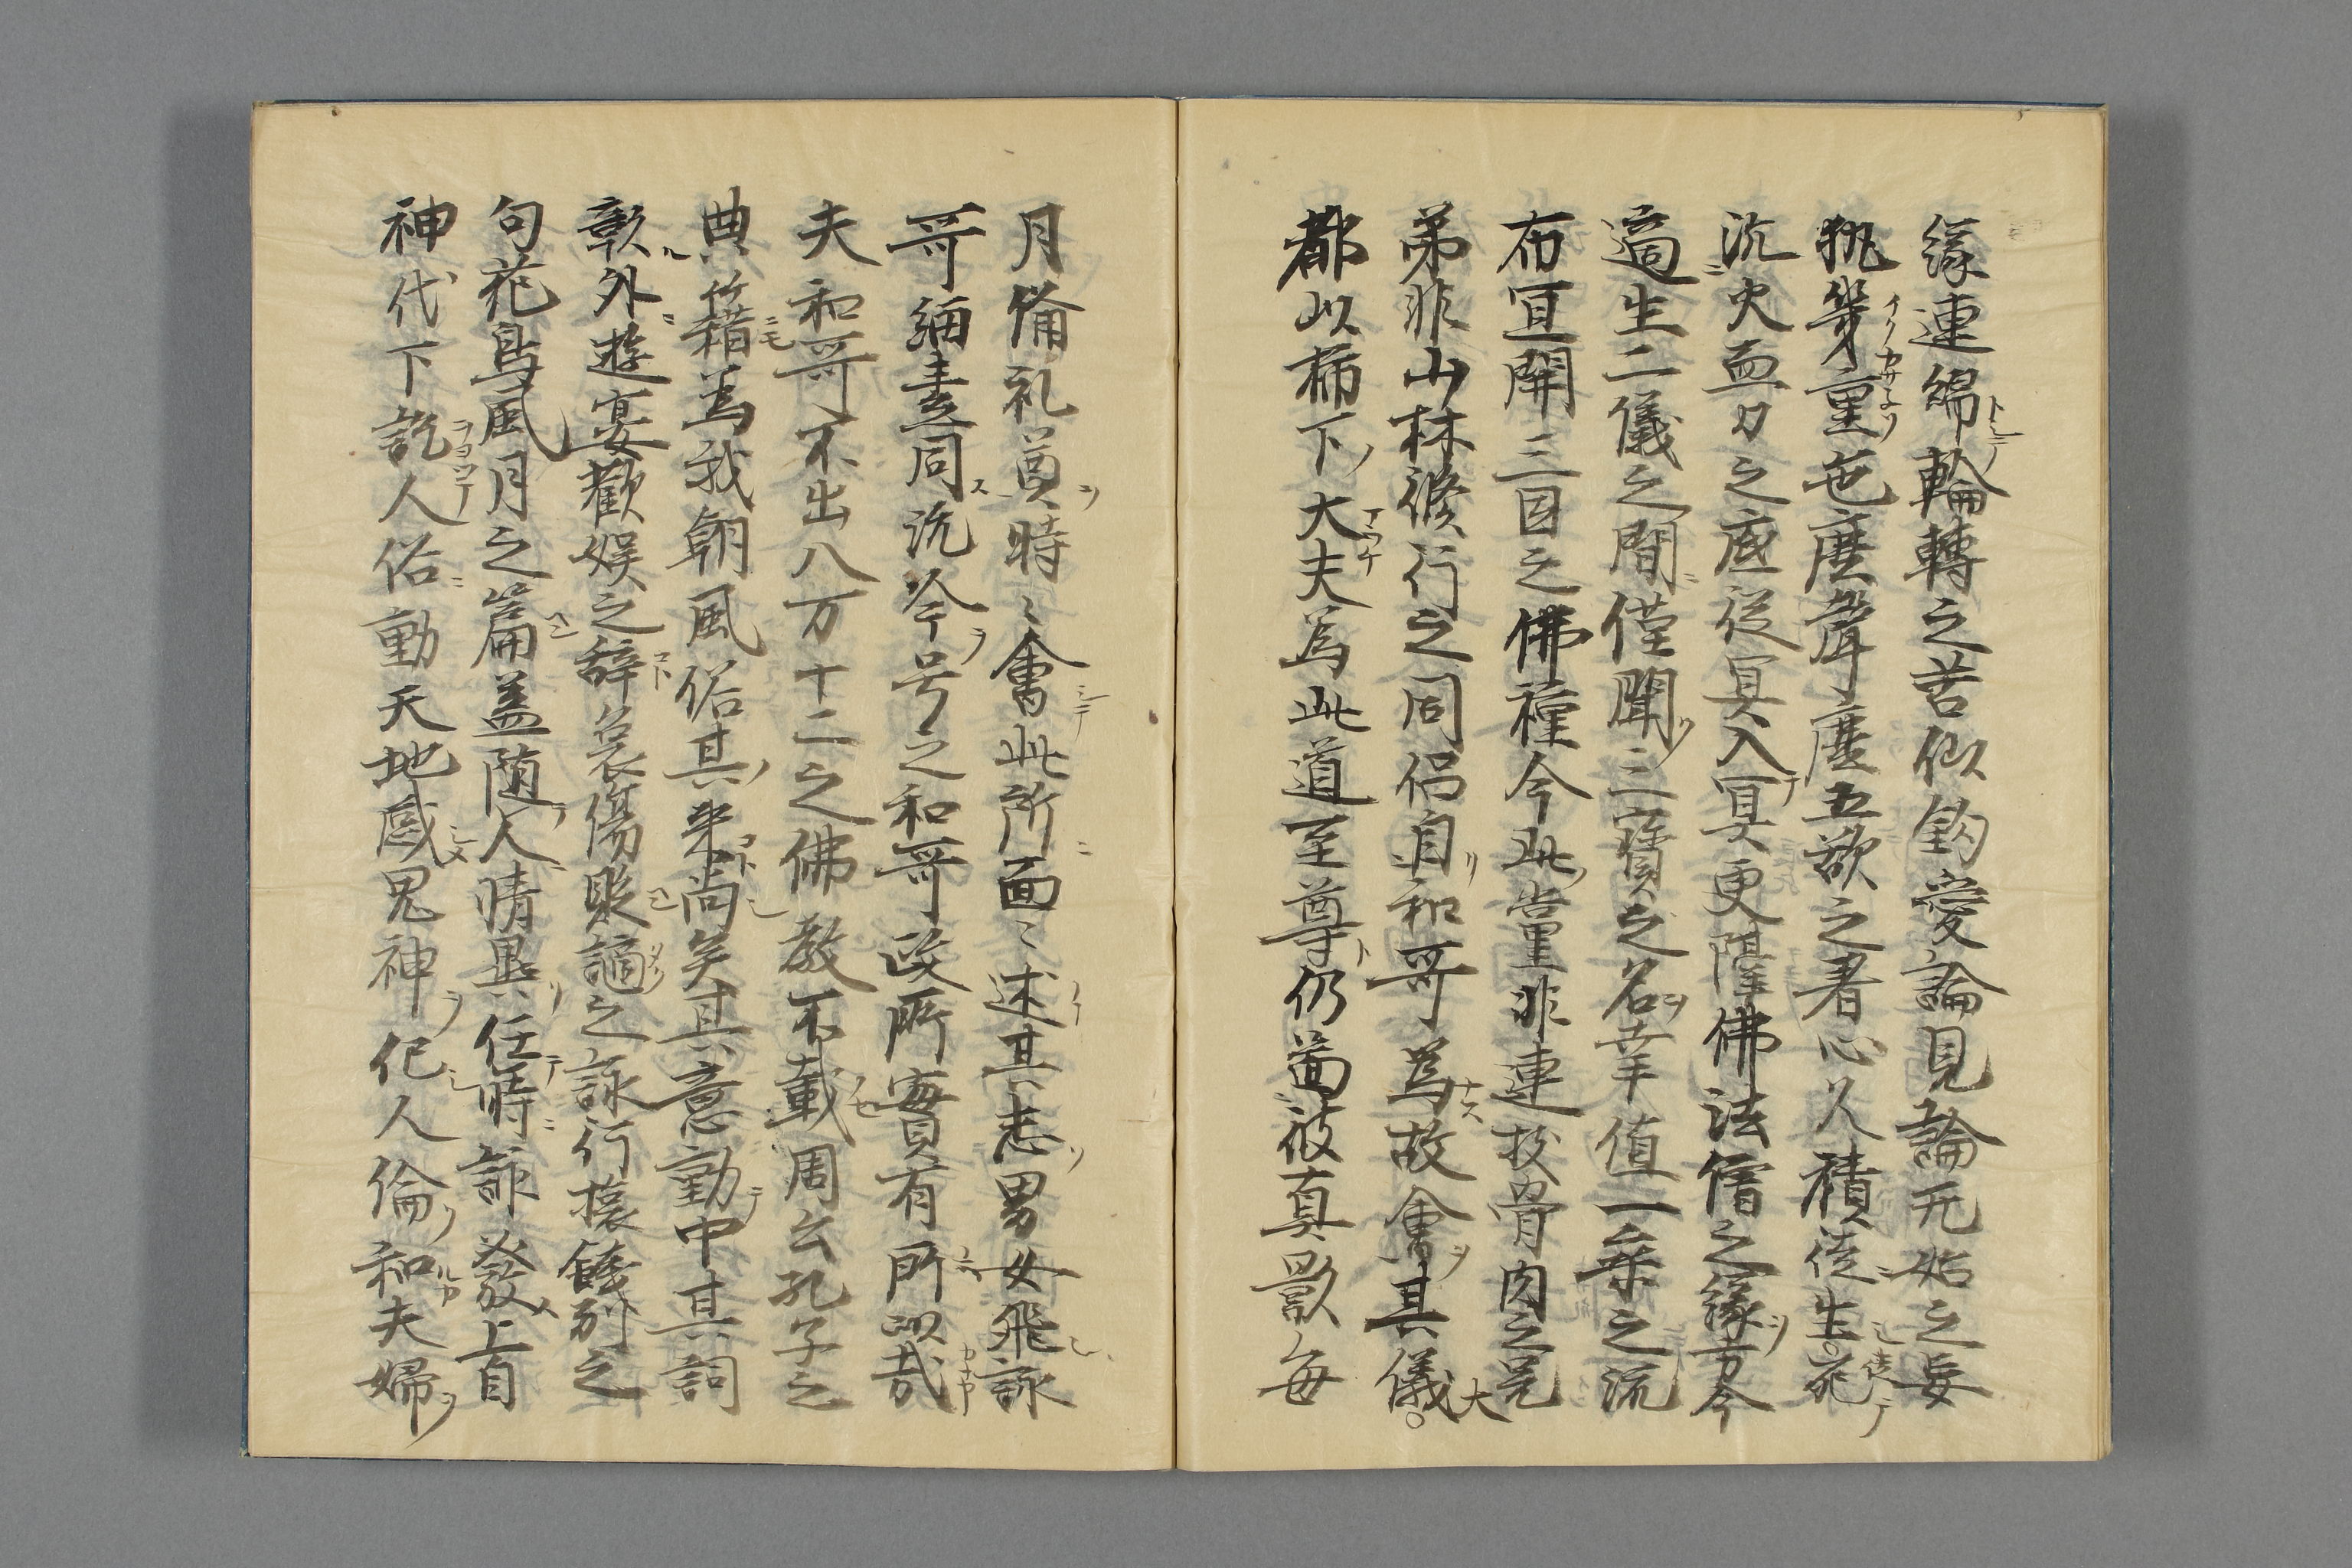 縁連綿輪轉之苦似鈎愛論見論无始之妄
執幾重色塵聲塵五欲之著心以積徒生死
沉火血刀之底従冥入冥更隔佛法僧之縁方今
適生二儀之間僅聞三寶之名幸值一乗之流
布宜開三因之佛種今此黨非連枝骨肉之
弟非山林修行之同侶自和哥為故會其儀大
都以柿下大夫為此道至尊仍啚彼真影毎
月備礼奠時〻會此所面〻述其志男女飛詠
哥緇素同沉吟号之和哥政所實有所以哉
夫和哥不出八万十二之佛教不載周公孔子之
典籍為我朝風俗其来尚矣其意動中其詞
彰外遊宴歡娯之辞哀傷貶謫之詠行旅餞別之
句花鳥風月之篇盖随人情異任時節發上自
神代下訖人俗動天地感鬼神化人倫和夫婦